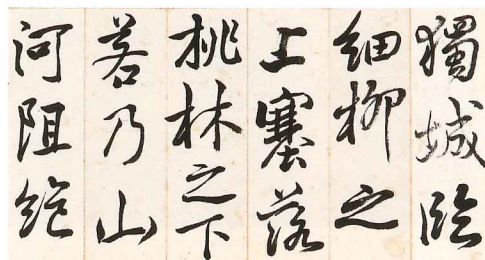 獨城臨
細柳之
上塞落
桃林之下
若乃山
河阻絕